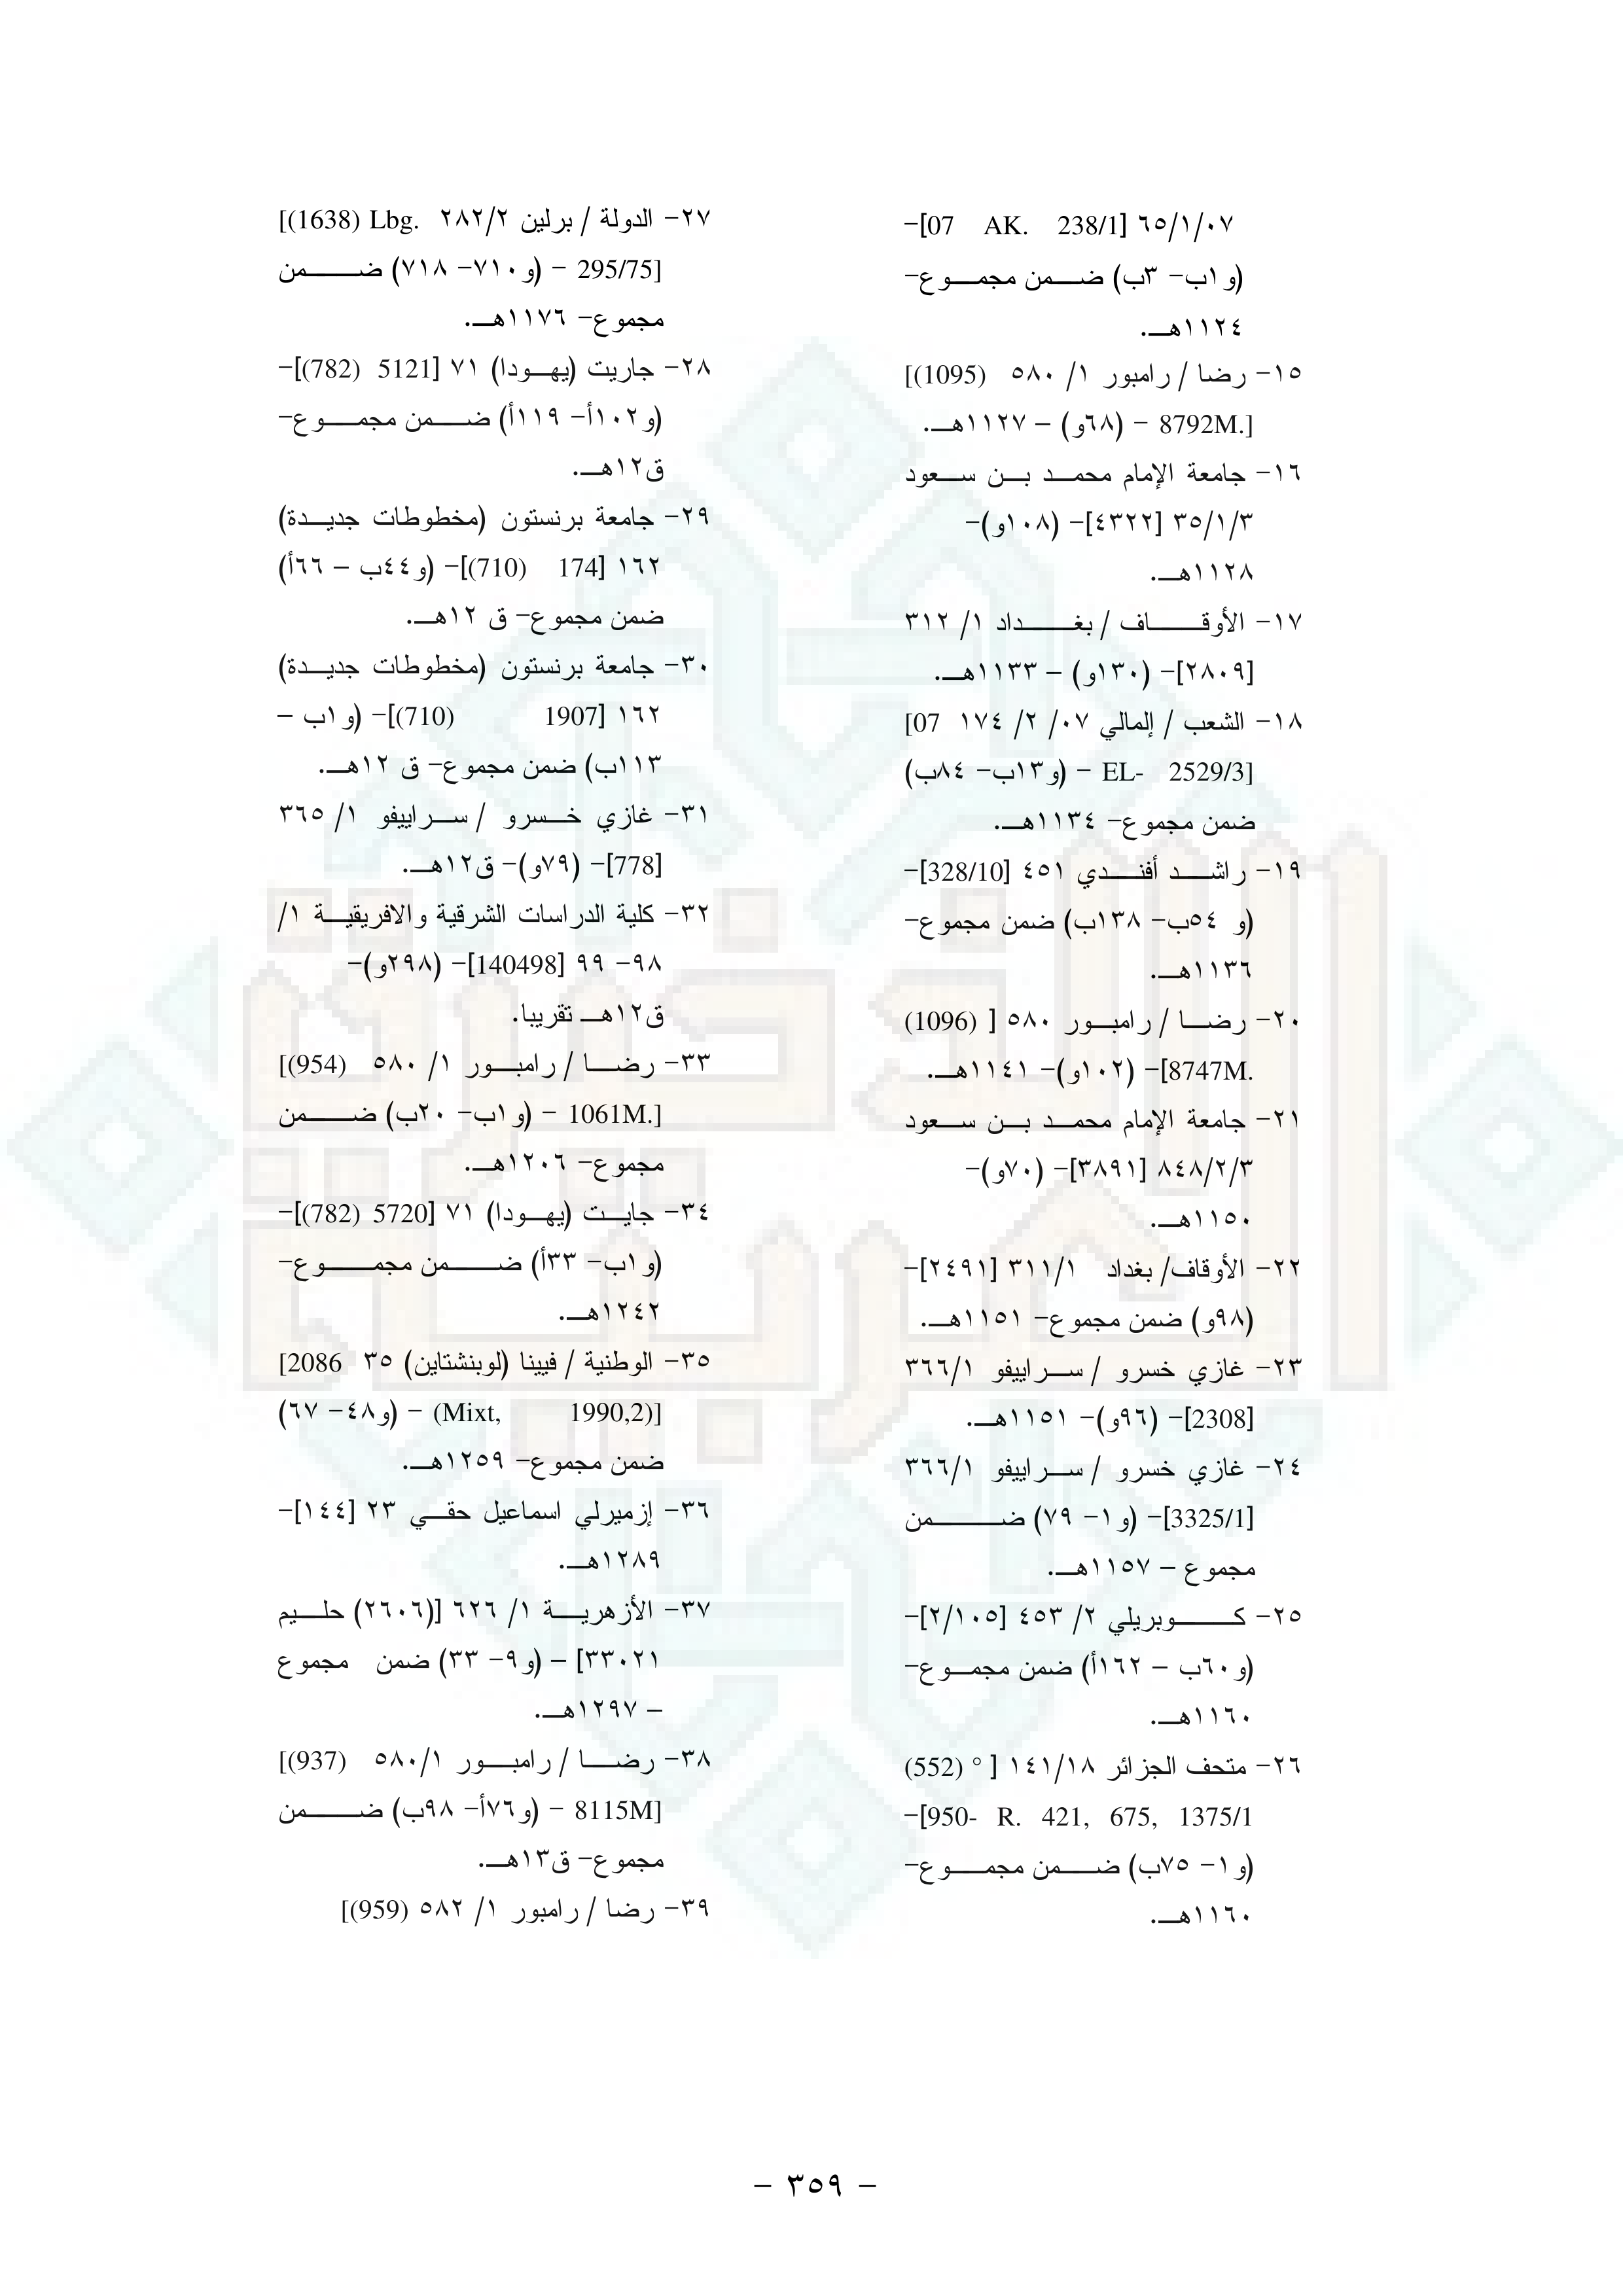 ٦٥/١/٠٧ [07 AK. 238/1]-
(و١ب- ٣ب) ضمن مجموع-
١١٢٤هـ.
١٥- رضا / رامبور ١/ ٥٨٠ [(1095)
8792M.] - (٦٨و) - ١١٢٧هـ.
١٦- جامعة الإمام محمد بن سعود
٣٥/١/٣ [٤٣٢٢]- (١٠٨و)-
١١٢٨هـ.
١٧- الأوقاف / بغداد ١/ ٣١٢
[٢٨٠٩]- (١٣٠و) - ١١٣٣هـ.
١٨- الشعب / إلمالي ٠٧/ ٢/ ١٧٤ [07
EL- 2529/3] - (و١٣ب- ٨٤ب)
ضمن مجموع- ١١٣٤هـ.
١٩- راشد أفندي ٤٥١ [328/10]-
(و ٥٤ب- ١٣٨ب) ضمن مجموع-
١١٣٦هـ.
٢٠- رضا / رامبور ٥٨٠ [ (1096)
8747M.]- (١٠٢و)- ١١٤١هـ.
٢١- جامعة الإمام محمد بن سعود
٨٤٨/٢/٣ [٣٨٩١]- (٧٠و)-
١١٥٠هـ.
٢٢- الأوقاف/ بغداد ٣١١/١ [٢٤٩١]-
(٩٨و) ضمن مجموع- ١١٥١هـ.
٢٣- غازي خسرو / سراييفو ٣٦٦/١
[2308]- (٩٦و)- ١١٥١هـ.
٢٤- غازي خسرو / سراييفو ٣٦٦/١
[3325/1]- (و١- ٧٩) ضمن
مجموع - ١١٥٧هـ.
٢٥- كوبريلي ٢/ ٤٥٣ [٢/١٠٥]-
(و٦٠ب - ١٦٢أ) ضمن مجموع-
١١٦٠هـ.
٢٦- متحف الجزائر ١٤١/١٨ [ ° (552)
950- R. 421, 675, 1375/1]-
(و١- ٧٥ب) ضمن مجموع-
١١٦٠هـ.
٢٧- الدولة / برلين ٢٨٢/٢ [(1638) Lbg.
295/75] - (و٧١٠- ٧١٨) ضمن
مجموع- ١١٧٦هـ.
٢٨- جاريت (يهودا) ٧١ [5121 (782)]-
(و١٠٢أ- ١١٩أ) ضمن مجموع-
ق١٢هـ.
٢٩- جامعة برنستون (مخطوطات جديدة)
١٦٢ [174 (710)]- (و٤٤ب - ٦٦أ)
ضمن مجموع- ق ١٢هـ.
٣٠- جامعة برنستون (مخطوطات جديدة)
١٦٢ [1907 (710)]- (و١ب -
١١٣ب) ضمن مجموع- ق ١٢هـ.
٣١- غازي خسرو / سراييفو ١/ ٣٦٥
[778]- (٧٩و)- ق١٢هـ.
٣٢- كلية الدراسات الشرقية والافريقية ١/
٩٨- ٩٩ [140498]- (٢٩٨و)-
ق١٢هـ تقريبا.
٣٣- رضا / رامبور ١/ ٥٨٠ [(954)
1061M.] - (و١ب- ٢٠ب) ضمن
مجموع- ١٢٠٦هـ.
٣٤- جايت (يهودا) ٧١ [5720 (782)]-
(و١ب- ٣٣أ) ضمن مجموع-
١٢٤٢هـ.
٣٥- الوطنية / فيينا (لوبنشتاين) ٣٥ [2086
(Mixt, 1990,2)] - (و٤٨- ٦٧)
ضمن مجموع- ١٢٥٩هـ.
٣٦- إزميرلي اسماعيل حقي ٢٣ [١٤٤]-
١٢٨٩هـ.
٣٧- الأزهرية ١/ ٦٢٦ [(٢٦٠٦) حليم
٣٣٠٢١] - (و٩- ٣٣) ضمن مجموع
- ١٢٩٧هـ.
٣٨- رضا / رامبور ٥٨٠/١ [(937)
8115M] - (و٧٦أ- ٩٨ب) ضمن
مجموع- ق١٣هـ.
٣٩- رضا / رامبور ١/ ٥٨٢ [(959)
- ٣٥٩ -